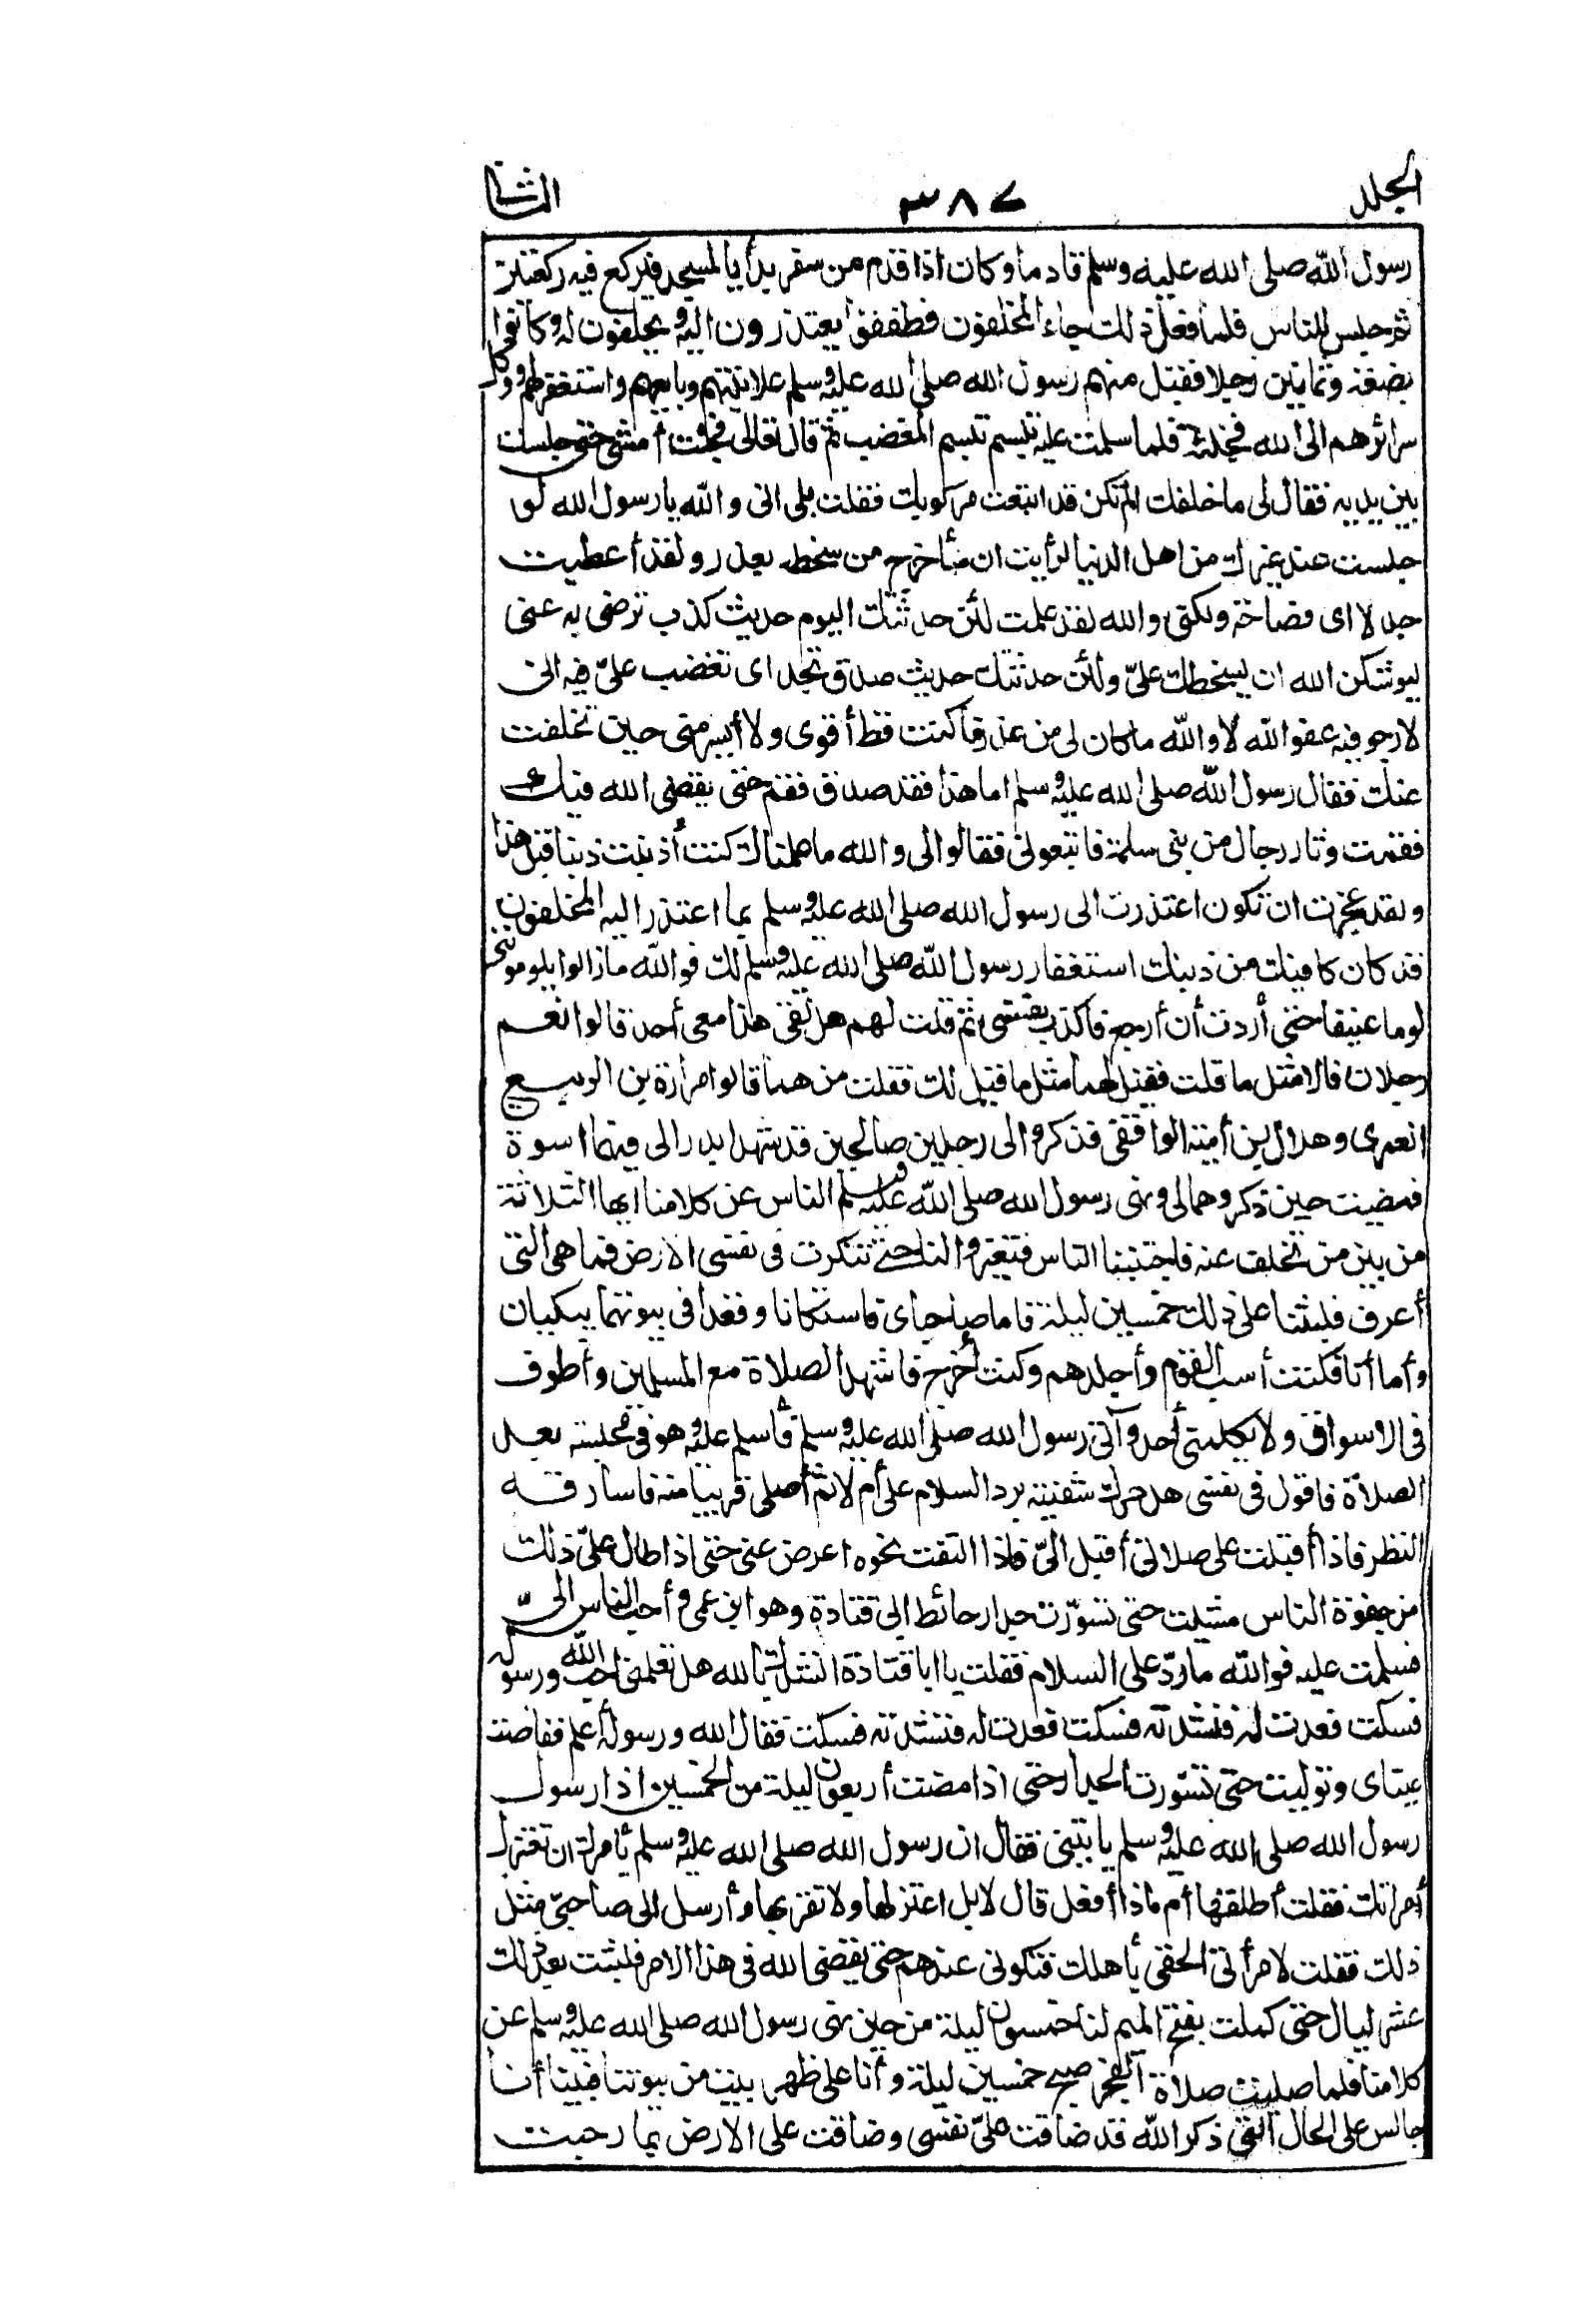 الجلد ٣٨٧ الثانى
رسول الله صلى الله عليه وسلم قادما وكان اذا قدم من سفر بدأ بالمسجد فيركع فيه ركعتين
ثم جلس للناس فلما فعل ذلك جاء المخلفون فطفقوا يعتذرون اليه ويحلفون له وكانوا
بضعة وثمانين رجلا فقبل منهم رسول الله صلى الله عليه وسلم علانيتهم وبايعهم واستغفر لهم ووكل
سرائرهم الى الله فجئته فلما سلمت عليه تبسم تبسم المغضب ثم قال تعالى فجئت أمشى حتى جلست
بين يديه فقال لى ما خلفك الم تكن قد ابتعت مركوبك فقلت بلى انى والله يا رسول الله لو
جلست عند غيرك من اهل الدنيا لرأيت ان سأخرج من سخطه بعذر ولقد أعطيت
جدلا اى فصاحة ولكنى والله لقد علمت لئن حدثتك اليوم حديث كذب ترضى به عنى
ليوشكن الله ان يسخطك علىّ ولئن حدثتك حديث صدق تجد اى تغضب علىّ فيه انى
لارجو فيه عفو الله لا والله ما كان لى من عذر ما كنت قط أقوى ولا أيسر منى حين تخلفت
عنك فقال رسول الله صلى الله عليه وسلم اما هذا فقد صدق فقم حتى يقضى الله فيك
فقمت وثار رجال من بنى سلمة فاتبعونى فقالوا لى والله ما علمناك كنت أذنبت ذنبا قبل هذا
ولقد عجزت ان تكون اعتذرت الى رسول الله صلى الله عليه وسلم بما اعتذر اليه المخلفون
قد كان كافيك من ذنبك استغفار رسول الله صلى الله عليه وسلم لك فوالله ما زالوا يلوموننى
لوما عنيفا حتى أردت أن أرجع فأكذب نفسى ثم قلت لهم هل لقى هذا معى أحد قالوا نعم
رجلان قالا مثل ما قلت فقيل لهما مثل ما قيل لك فقلت من هما قالوا مرارة بن الربيع
العمرى وهلال بن أمية الواقفى فذكروا لى رجلين صالحين قد شهدا بدرا لى فيهما اسوة
فمضيت حين ذكروهما لى ونهى رسول الله صلى الله عليه وسلم الناس عن كلامنا ايها الثلاثة
من بين من تخلف عنه فاجتنبنا الناس فتغيروا لنا حتى تنكرت فى نفسى الارض فما هى التى
أعرف فلبثنا على ذلك خمسين ليلة فاما صاحباى فاستكانا وقعدا فى بيوتهما يبكيان
وأما أنا فكنت أسب القوم وأجلدهم وكنت أخرج فاشهد الصلاة مع المسلمين وأطوف
فى الاسواق ولا يكلمنى أحد وآتى رسول الله صلى الله عليه وسلم فأسلم عليه وهو فى مجلسه بعد
الصلاة فاقول فى نفسى هل حرك شفتيه برد السلام على أم لا ثم أصلى قريبا منه فاسارقه
النظر فاذا أقبلت على صلاتى أقبل الىّ فاذا التفت نحوه اعرض عنى حتى اذا طال علىّ ذلك
من جفوة الناس مشيت حتى تسوّرت جدار حائط ابى قتادة وهو ابن عمى وأحب الناس الىّ
فسلمت عليه فوالله ما ردّ على السلام فقلت يا ابا قتادة انشدك بالله هل تعلمنى احب الله ورسوله
فسكت فعدت له فنشدته فسكت فعدت له فنشدته فسكت فقال الله ورسوله أعلم ففاضت
عيناى وتوليت حتى تسّورت الجدار حتى اذا مضت أربعون ليلة من الخمسين اذا رسول
رسول الله صلى الله عليه وسلم يأتينى فقال ان رسول الله صلى الله عليه وسلم يأمرك ان تعتزل
أمرأتك فقلت أطلقها أم ماذا أفعل قال لا بل اعتزلها ولا تقربها وأرسل الى صاحبىّ مثل
ذلك فقلت لامرأتى الحقى بأهلك فتكونى عندهم حتى يقضى الله فى هذا الامر فلبثت بعد ذلك
عشر ليال حتى كملت بفتح الميم لنا خمسون ليلة من حين نهى رسول الله صلى الله عليه وسلم عن
كلامنا فلما صليت صلاة الفجر صبح خمسين ليلة وأنا على ظهر بيت من بيوتنا فبينا أنا
جالس على الحال التى ذكر الله قد ضاقت علىّ نفسى وضاقت على الارض بما رحبت